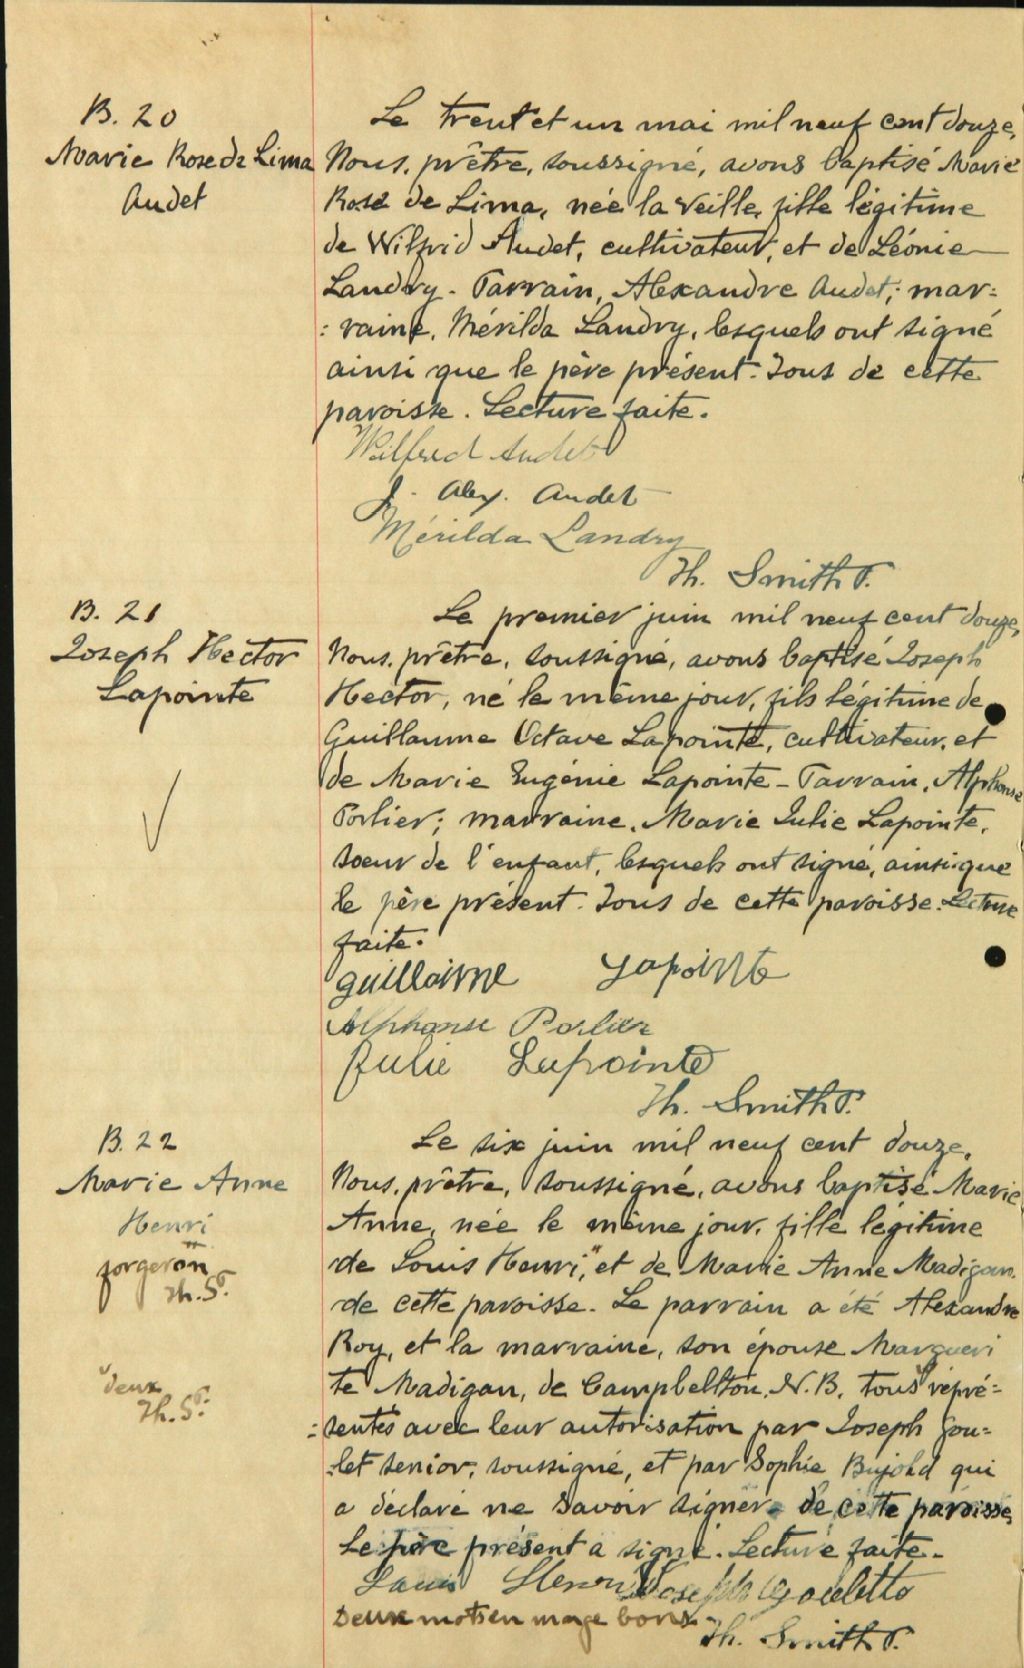 B. 20
Marie Rose de Lima
Audet
Le trent et un mai mil neuf cent douze,
Nous, prêtre, soussigné, avons baptisé Marie
Rose de Lima, née la veille, fille légitime
de Wilfrid Audet, cultivateur, et de Léonie
Landry - Parrain, Alexandre Audet; mar=
:raine, Mérilda Landry, lesquels ont signé
ainsi que le père présent. Tous de cette
paroisse. Lecture faite.
Wilfred Audet
J. Alex. Audet
Mérilda Landry
Th. Smith P.
B. 21
Joseph Hector
Lapointe
Le premier juin mil neuf cent douze,
Nous, prêtre, soussigné, avons baptisé Joseph
Hector, né le même jour, fils légitime de
Guillaume Octave Lapointe, cultivateur, et
de Marie Eugénie Lapointe - Parrain, Alphonse
Porlier; marraine, Marie Julie Lapointe,
soeur de l'enfant, lesquels ont signé, ainsi que
le père présent. Tous de cette paroisse. Lecture
faite.
guillaime Lapointe
Alphonse Porlier
Julie Lapointe
Th. Smith P.
B. 22
Marie Anne
Henri
" forgeron
Th. S. P.
Le six juin mil neuf cent douze,
Nous, prêtre, soussigné, avons baptisé Marie
Anne, née le même jour, fille légitime
de Louis Henri," et de Marie Anne Madigan
de cette paroisse. Le parrain a été Alexandre
Roy, et la marraine, son épouse Margueri
te Madigan, de Campbellton, N.B. tous ˅ repré=
˅ deux
Th. S. P.
=sentés avec leur autorisation par Joseph Gou=
let senior, soussigné, et par Sophie Bujold qui
a déclaré ne savoir signer. de cette paroisse,
Le père présent a signé. Lecture faite.
Louis Henri Joseph Goulette
Deux mots en marge bons
Th. Smith P.